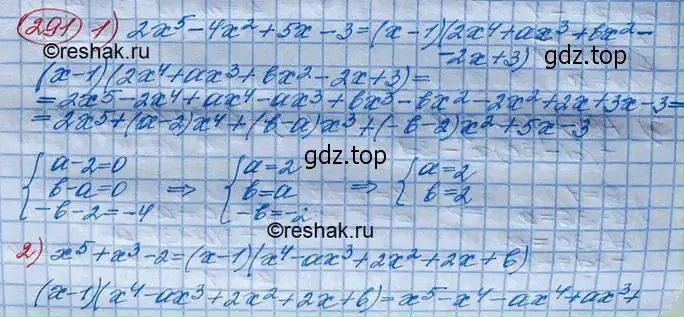 291 1) 2x⁵-4x²+5x-3=(x-1)(2x⁴+ax³+bx²-
-2x+3)
gdz.top
©reshak.ru
(x-1)(2x⁴+ax³+bx²-2x+3)=
=2x⁵-2x⁴+ax⁴-ax³+bx³-bx²-2x²+2x+3x-3=
=2x⁵+(a-2)x⁴+(b-a)x³+(-b-2)x²+5x-3
gdz.top
{a-2=0 {a=2 {a=2
{b-a=0 ⇒ {b=a ⇒ {b=2
{-b-2=-4 {-b=-2
©reshak.ru
2) x⁵+x³-2=(x-1)(x⁴-ax³+2x²+2x+b)
(x-1)(x⁴-ax³+2x²+2x+b)=x⁵-x⁴-ax⁴+ax³+